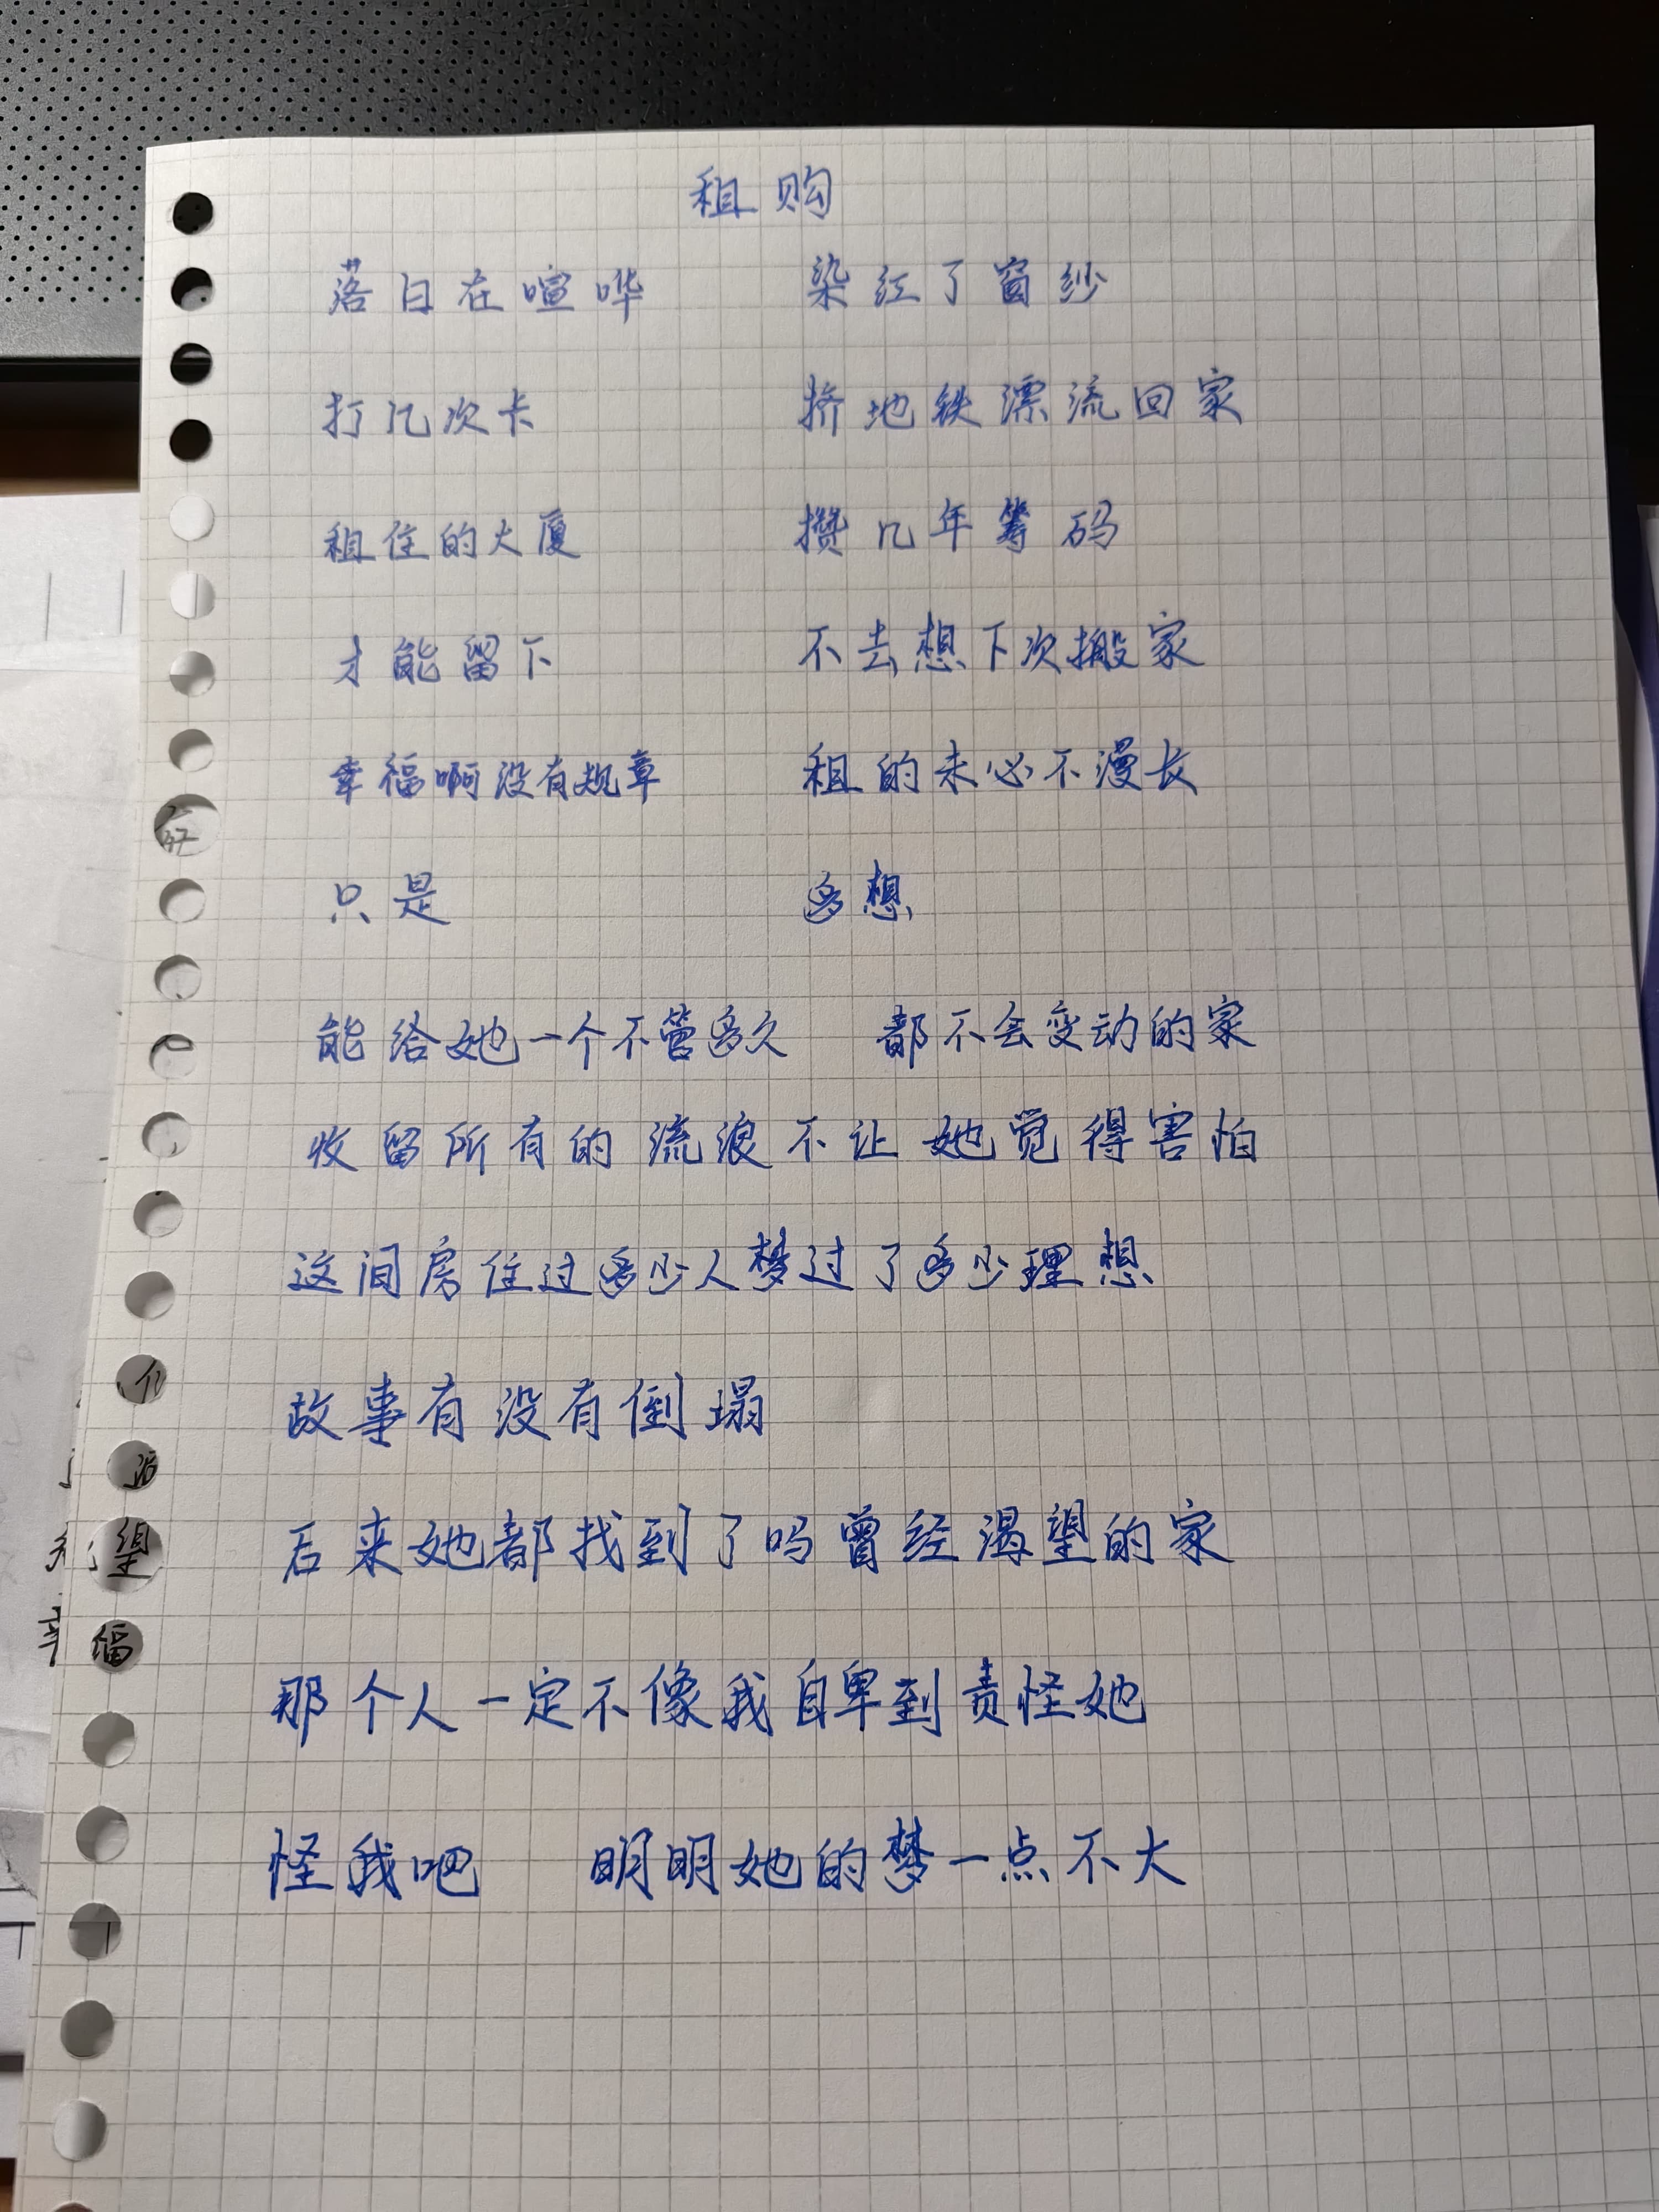 租购
落日在喧哗 染红了窗纱
打几次卡 挤地铁漂流回家
租住的大厦 攒几年筹码
才能留下 不去想下次搬家
幸福啊没有规章 租的未必不漫长
只是 多想
能给她一个不管多久 都不会变动的家
收留所有的流浪不让她觉得害怕
这间房住过多少人梦过了多少理想
故事有没有倒塌
后来她都找到了吗曾经渴望的家
那个人一定不像我自卑到责怪她
怪我吧 明明她的梦一点不大